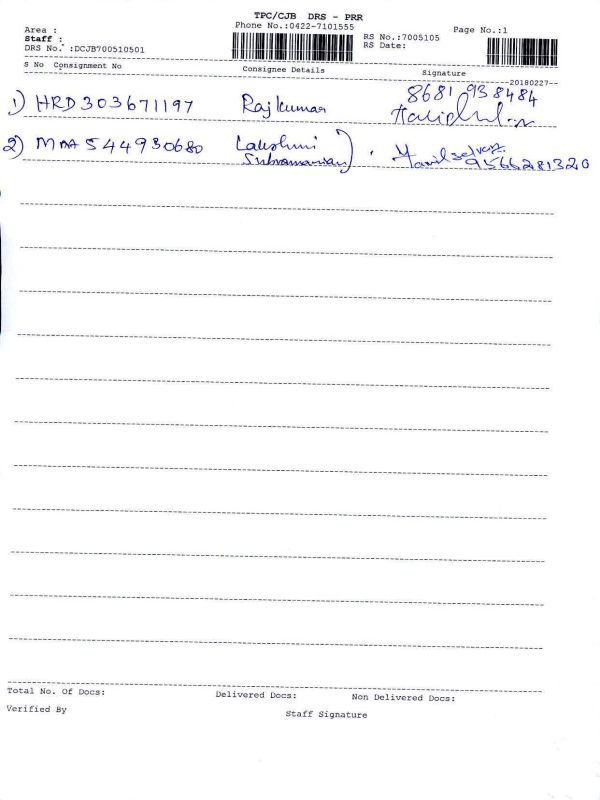 TPC/CJB DRS - PRR
Phone No.:0422-7101555
Page No.:1
Area :
Staff :
DRS No. :DCJB700510501
RS No.:7005105
RS Date:
S No Consignment No Consignee Details Signature
--20180227--
1) HRD303671197 Rajkumar 8681938484
2) MAA544930680 Lakshmi Subramanian) Tamilselvan
9566281320
Total No. Of Docs: Delivered Docs: Non Delivered Docs:
Verified By Staff Signature